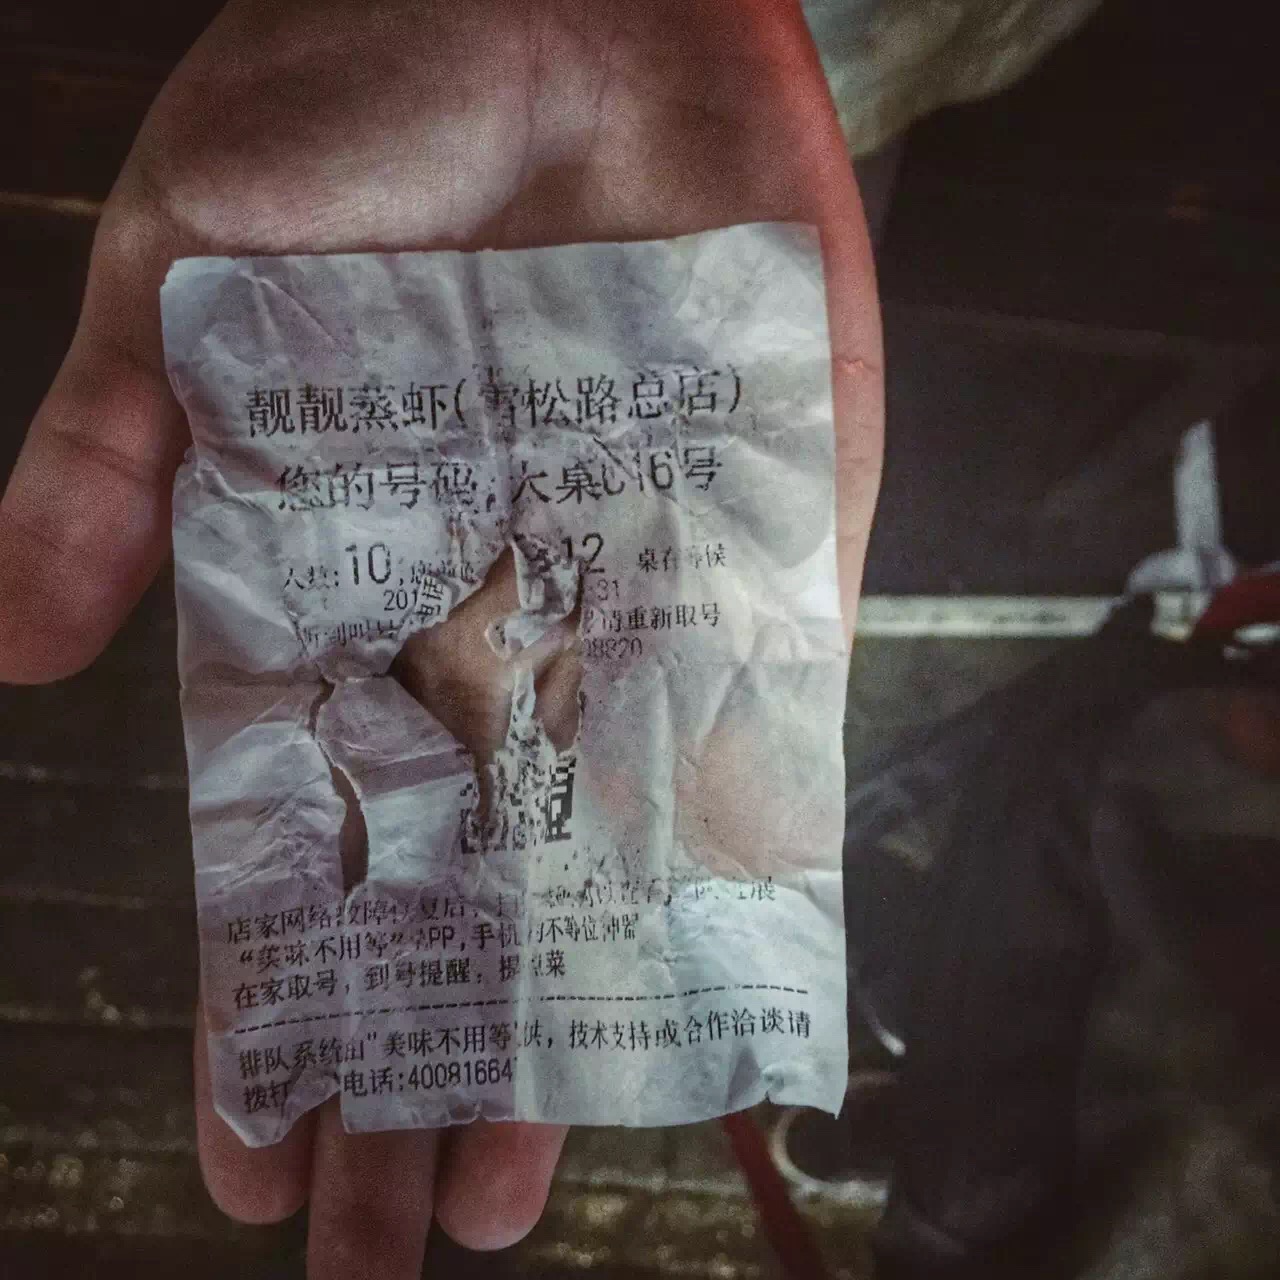 靓靓蒸虾(雪松路总店)
您的号码:大桌C16号
人数:10, 12 桌在等候
201 :31
听到叫号 请重新取号
电话 08820
店家网络故障恢复后, 可以查看 展
“美味不用等”APP,手机 的不等位神器
在家取号,到号提醒,提 点菜
排队系统由"美味不用等 供,技术支持或合作洽谈请
拨打 电话:400816647